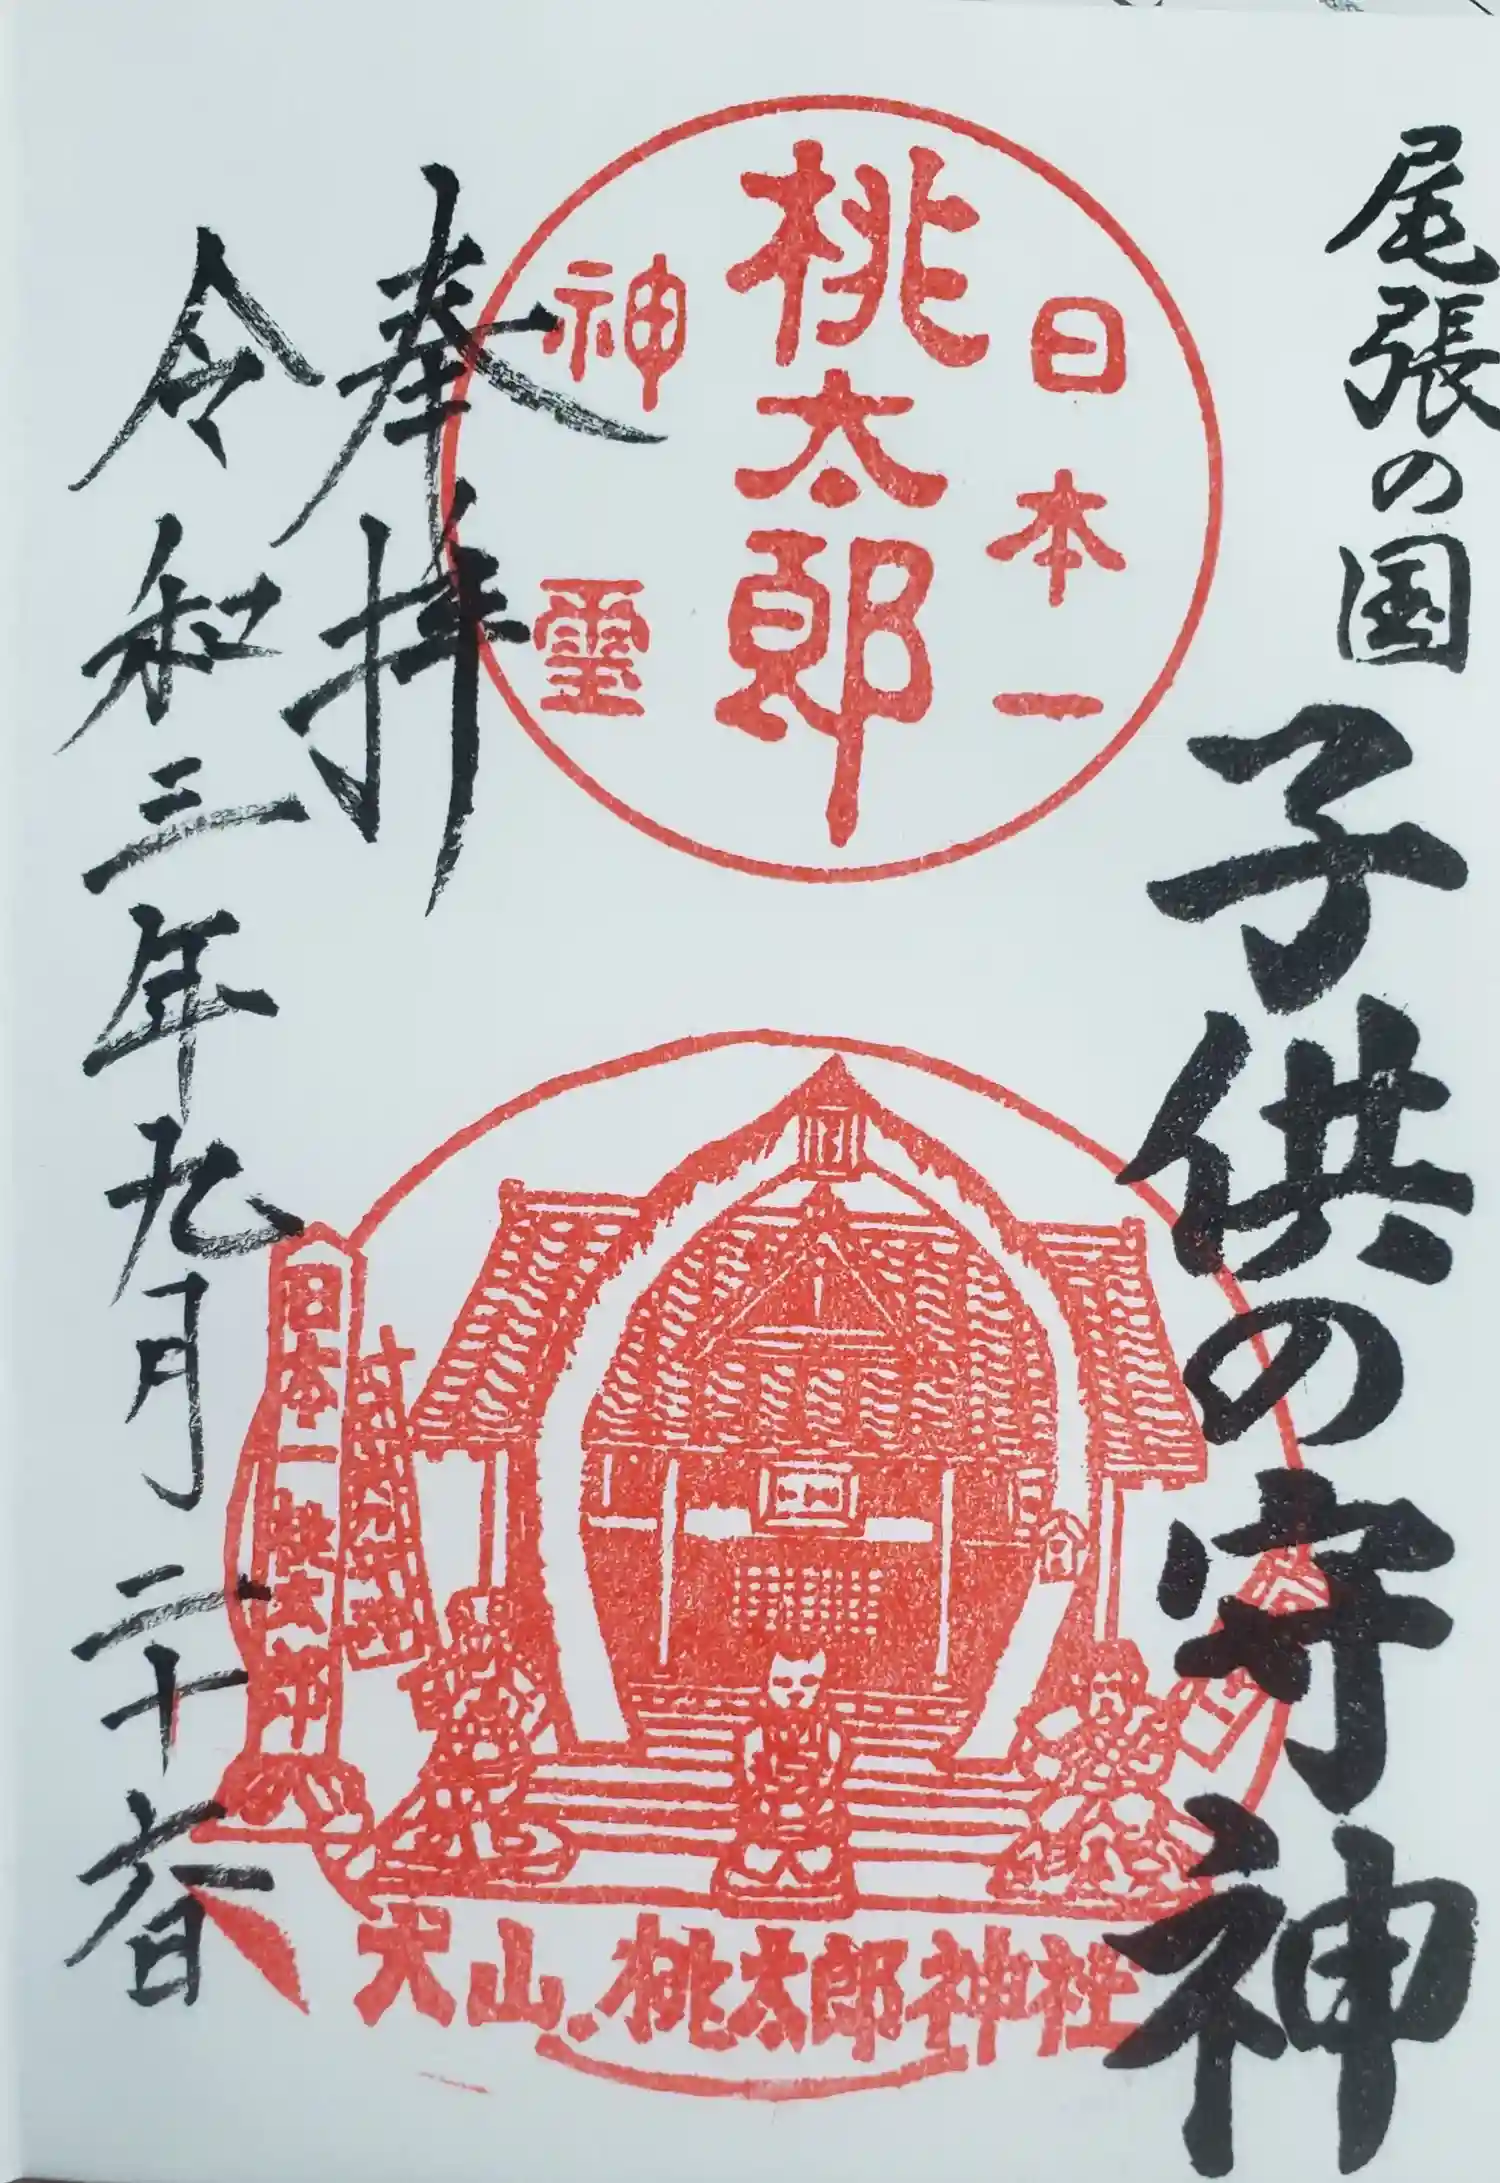 尾張の国
子供の守神
日本一
桃太郎
神霊
奉拝
令和三年九月二十六日
日本一桃太郎
犬山・桃太郎神社